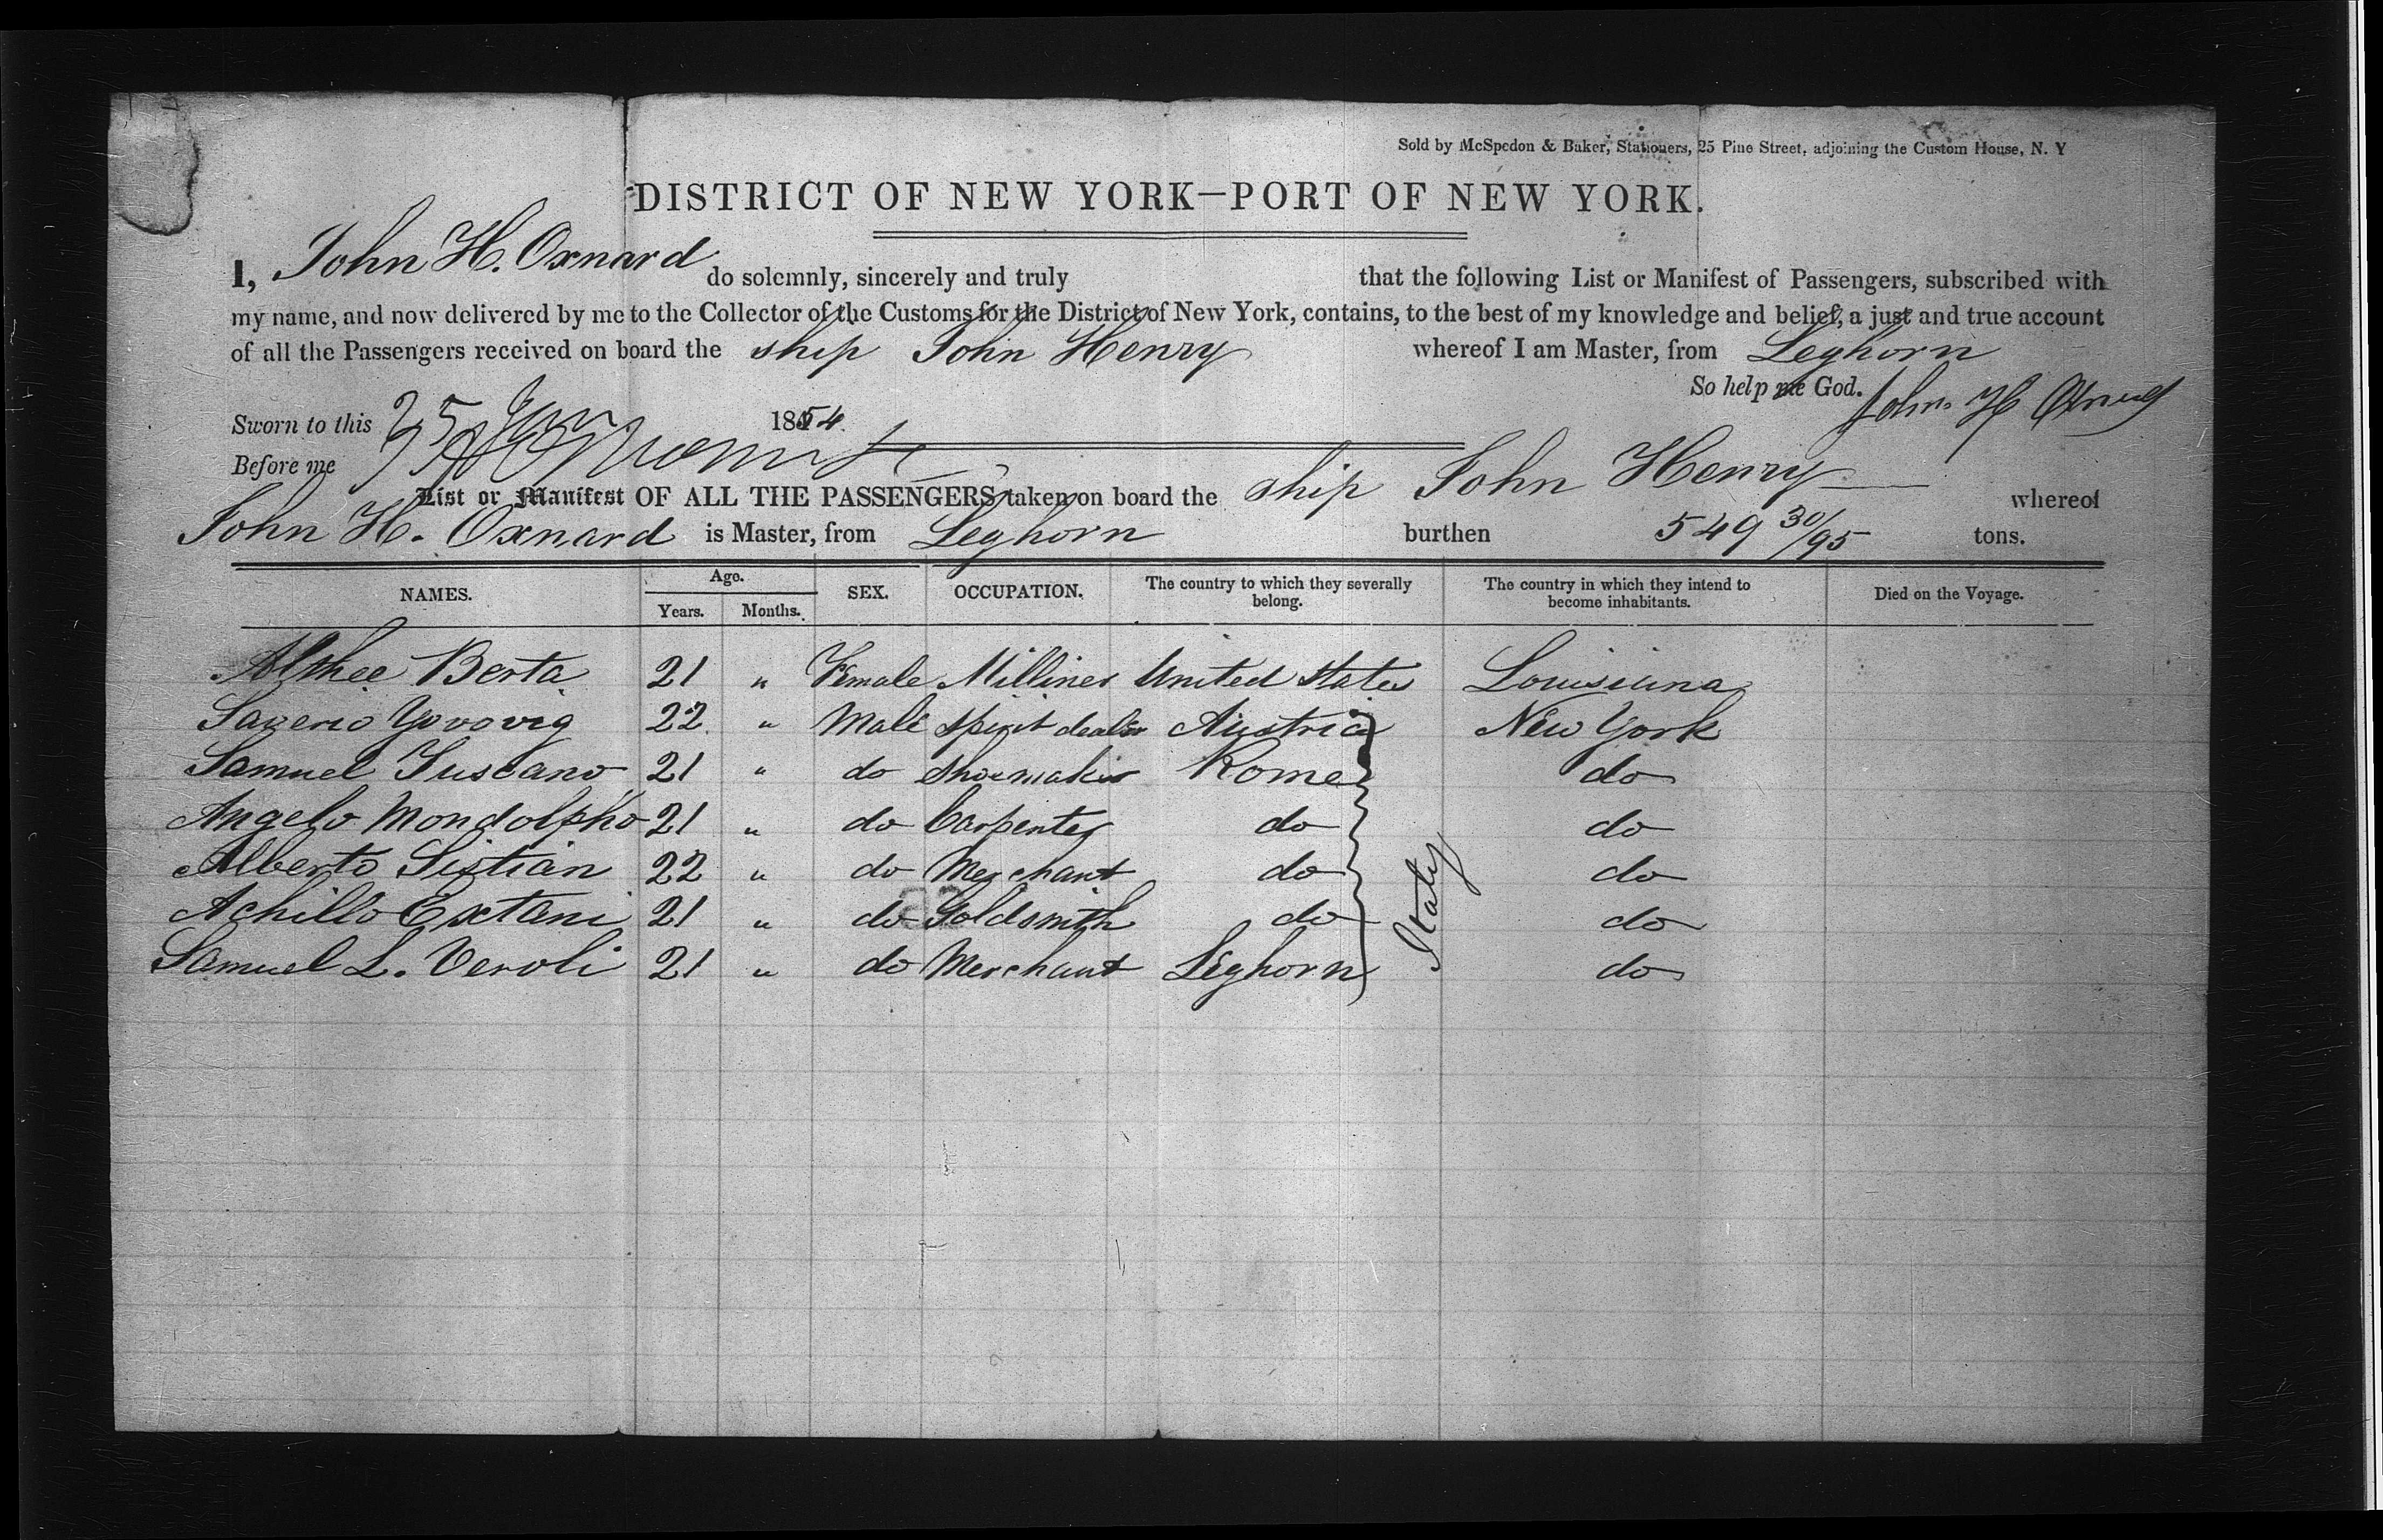 Sold by McSpedon & Baker, Stationers, 25 Pine Street, adjoining the Custom House, N. Y
DISTRICT OF NEW YORK—PORT OF NEW YORK.
I, John H. Oxnard do solemnly, sincerely and truly that the following List or Manifest of Passengers, subscribed with
my name, and now delivered by me to the Collector of the Customs for the District of New York, contains, to the best of my knowledge and belief, a just and true account
of all the Passengers received on board the ship John Henry whereof I am Master, from Leghorn
So help me God. John H Oxnard
Sworn to this 25 1854.
Before me
List or Manifest OF ALL THE PASSENGERS taken on board the ship John Henry whereof
John H. Oxnard is Master, from Leghorn burthen 549 30/95 tons.
NAMES. Age. Years. Months. SEX. OCCUPATION. The country to which they severally belong. The country in which they intend to become inhabitants. Died on the Voyage.
Althee Berta 21 " Female Milliner United States Louisiana
Saverio Yovovig 22 " Male Spirit dealer Austria New York
Samuel Tuscano 21 " do Shoemaker Rome do
Angelo Mondolpho 21 " do Carpenter do do
Alberto Sistian 22 " do Merchant do do
Achillo Extani 21 " do Goldsmith do do
Samuel L. Veroli 21 " do Merchant Leghorn do
Italy